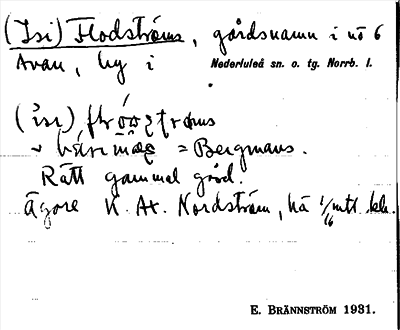 (Isi) Flodströms, gårdsnamn i no 6
Avan, by i Nederluleå sn. o. tg. Norrb. l.
= Bergmans.
Rätt gammal gård.
Ägare K. Ax. Nordström, ha 1/16 mtl
E. BRÄNNSTRÖM 1931.